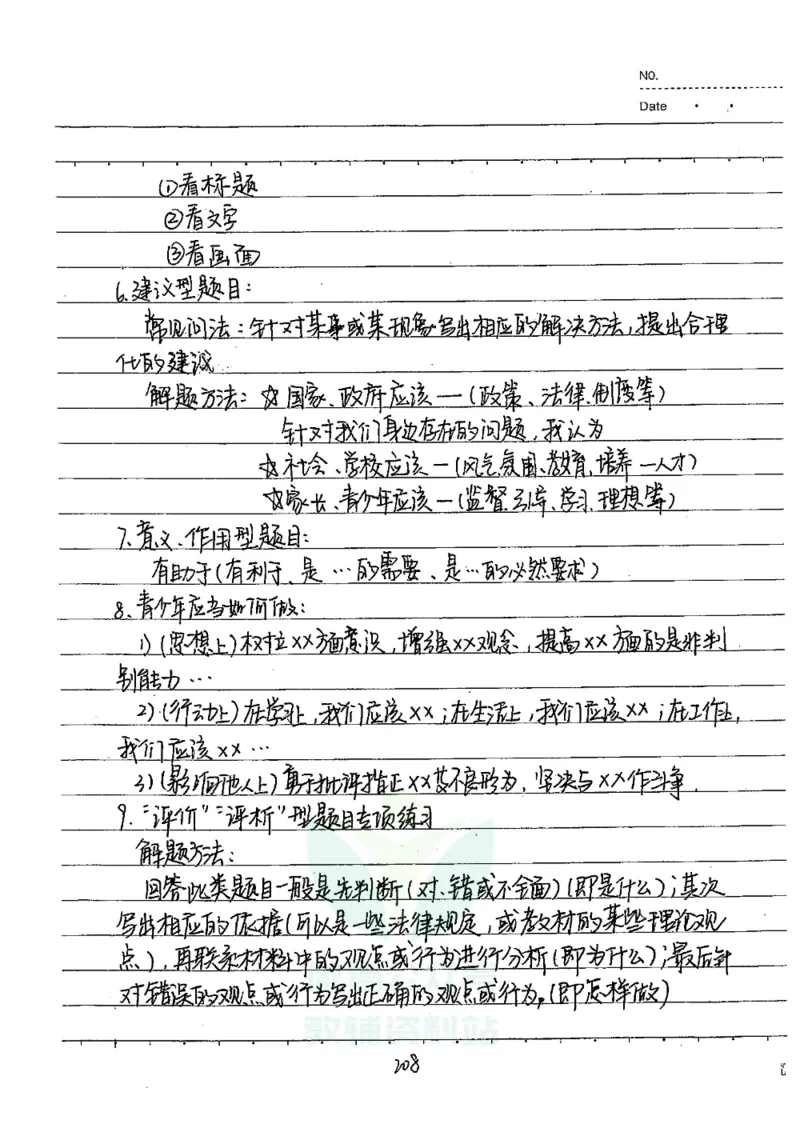 NO.
Date
①看标题
②看文字
③看画面
6.建议型题目：
常见问法：针对某事或某现象写出相应的解决方法，提出合理
化的建议
解题方法：☆国家、政府应该—（政策、法律、制度等）
针对我们身边存在的问题，我认为
☆社会、学校应该—（风气氛围、教育、培养—人才）
☆家长、青少年应该—（监督、引导、学习、理想等）
7.意义、作用型题目：
有助于（有利于、是…的需要、是…的必然要求）
8.青少年应当如何做：
1）（思想上）树立××方面意识，增强××观念，提高××方面的是非判
别能力…
2）（行动上）在学习上，我们应该××；在生活上，我们应该××；在工作上，
我们应该××…
3）（影响他人上）勇于批评指正××等不良行为，坚决与××作斗争.
9.“评价”“评析”型题目专项练习
解题方法：
回答此类题目一般是先判断（对、错或不全面）（即是什么）；其次
写出相应的依据（可以是一些法律规定，或教材的某些理论观
点），再联系材料中的观点或行为进行分析（即为什么）；最后针
对错误的观点或行为写出正确的观点或行为。（即怎样做）
教辅资料站
208